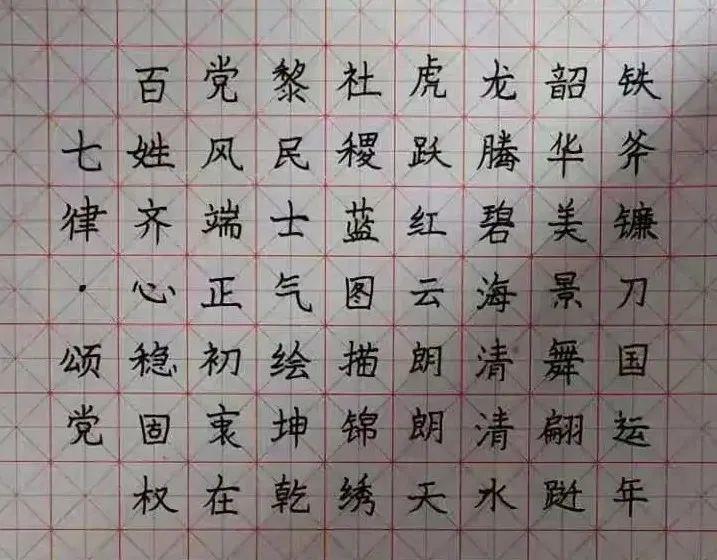 铁斧镰刀国运年
韶华美景舞翩跹
龙腾碧海清清水
虎跃红云朗朗天
社稷蓝图描锦绣
黎民士气绘坤乾
党风端正初衷在
百姓齐心稳固权
七律·颂党